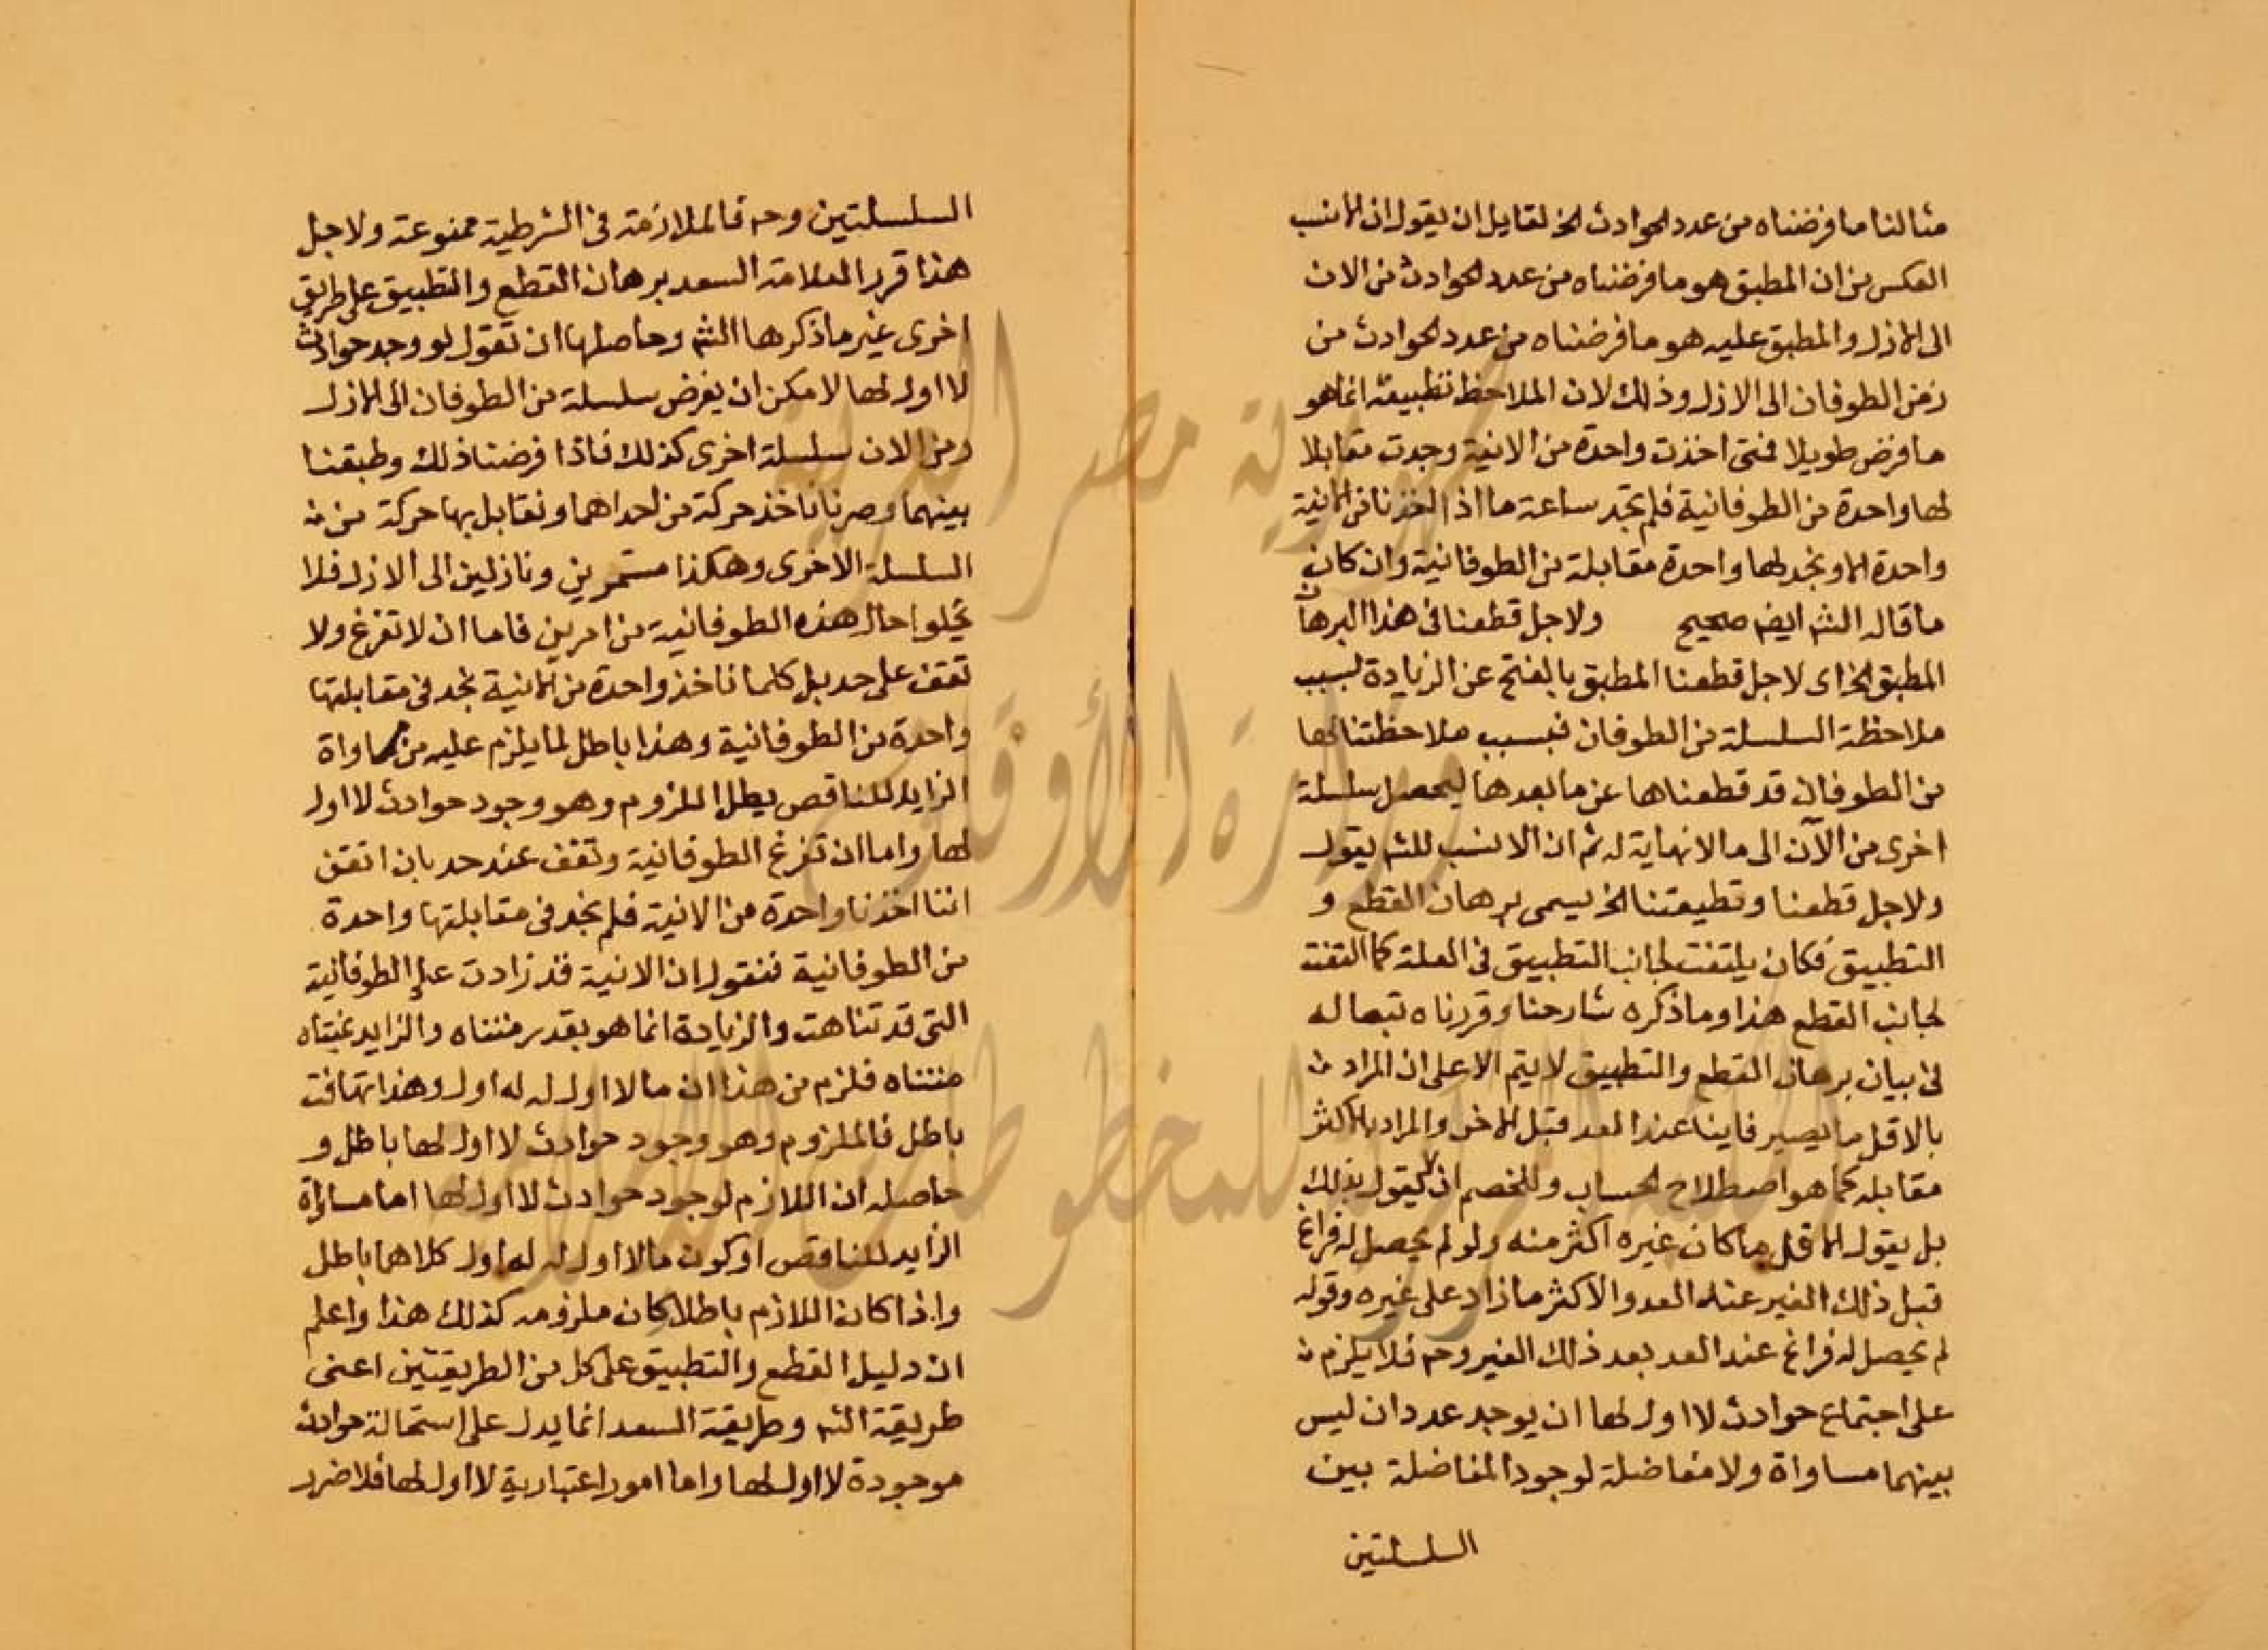 مثالنا ما فرضناه من عدد الحوادث الخ لقايل ان يقول ان الانسب
العكس من ان المطبق هو ما فرضناه من عدد الحوادث من الان
الى الازل والمطبق عليه هو ما فرضناه من عدد الحوادث من
زمن الطوفان الى الازل وذلك لان الملاحظ تطبيقه انما هو
ما فرض طويلا فمتى اخذت واحدة من الانية وجدت مقابلا
لها واحدة من الطوفانية فلم تجد ساعة ما اذا اخذنا من الانية
واحدة الا ونجد لها واحدة مقابلة من الطوفانية وان كان
ما قاله الشم ايضم صحيح ولاجل قطعنا في هذا البرهان
المطبق الخ اى لاجل قطعنا المطبق بالفتح عن الزيادة بسبب
ملاحظة السلسلة من الطوفان فبسبب ملاحظتنا لها
من الطوفان قد قطعناها عن ما بعدها ليحصل سلسلة
اخرى من الآن الى ما لا نهاية له ثم ان الانسب للشم يقول
ولاجل قطعنا وتطبيقنا الخ يسمى برهان القطع و
التطبيق فكان يلتفت لجانب التطبيق في العلة كما التفت
لجانب القطع هذا وما ذكره شارحنا وقررناه تبعا له
في بيان برهان القطع والتطبيق لا يتم الا على ان المراد
بالاقل ما يصير فانيا عند العد قبل الاخر والمراد بالاكثر
مقابله كما هو اصطلاح الحساب وللخصم ان لا يقول بذلك
بل يقول الاقل ما كان غيره اكثر منه ولو لم يحصل له فراغ
قبل ذلك الغير عند العد والاكثر ما زاد على غيره وقوله
لم يحصل له فراغ عند العد بعد ذلك الغير وحم فلا يلزم
على اجتماع حوادث لا اول لها ان يوجد عددان ليس
بينهما مساواة ولا مفاضلة لوجود المفاضلة بين
السلسلتين
السلسلتين وحم فالملازمة في الشرطية ممنوعة ولاجل
هذا قرر العلامة السعد برهان القطع والتطبيق على طريق
اخرى غير ما ذكرها الشم وحاصلها ان تقول لو وجد حوادث
لا اول لها لامكن ان يفرض سلسلة من الطوفان الى الازل
ومن الان سلسلة اخرى كذلك فاذا فرضنا ذلك وطبقنا
بينهما وصرنا ناخذ حركة من احداهما ونقابل بها حركة من
السلسلة الاخرى وهكذا مستمرين ونازلين الى الازل فلا
يخلوا حال هذه الطوفانية من امرين فاما ان لا تفرغ ولا
تقف على حد بل كلما ناخذ واحدة من الانية نجد في مقابلتها
واحدة من الطوفانية وهذا باطل لما يلزم عليه من مساواة
الزايد للناقص يطل الملزوم وهو وجود حوادث لا اول
لها واما ان تفرغ الطوفانية وتقف عند حد بان اتفق
اننا اخذنا واحدة من الانية فلم نجد في مقابلتها واحدة
من الطوفانية فنقول ان الانية قد زادت على الطوفانية
التى قد تناهت والزيادة انما هو بقدر متناه والزايد بمتناه
متناه فلزم من هذا ان ما لا اول له له اول وهذا تهافت
باطل فالملزوم وهو وجود حوادث لا اول لها باطل و
حاصله ان اللازم لوجود حوادث لا اول لها اما مساواة
الزايد للناقص او كون ما لا اول له له اول كلاهما باطل
واذا كان اللازم باطلا كان ملزومه كذلك هذا واعلم
ان دليل القطع والتطبيق على كل من الطريقتين اعنى
طريقة الشم وطريقة السعد انما يدل على استحالة حوادث
موجودة لا اول لها واما امور اعتبارية لا اول لها فلا ضرر
جمهورية مصر العربية
وزارة الأوقاف
المكتبة المركزية للمخطوطات الإسلامية